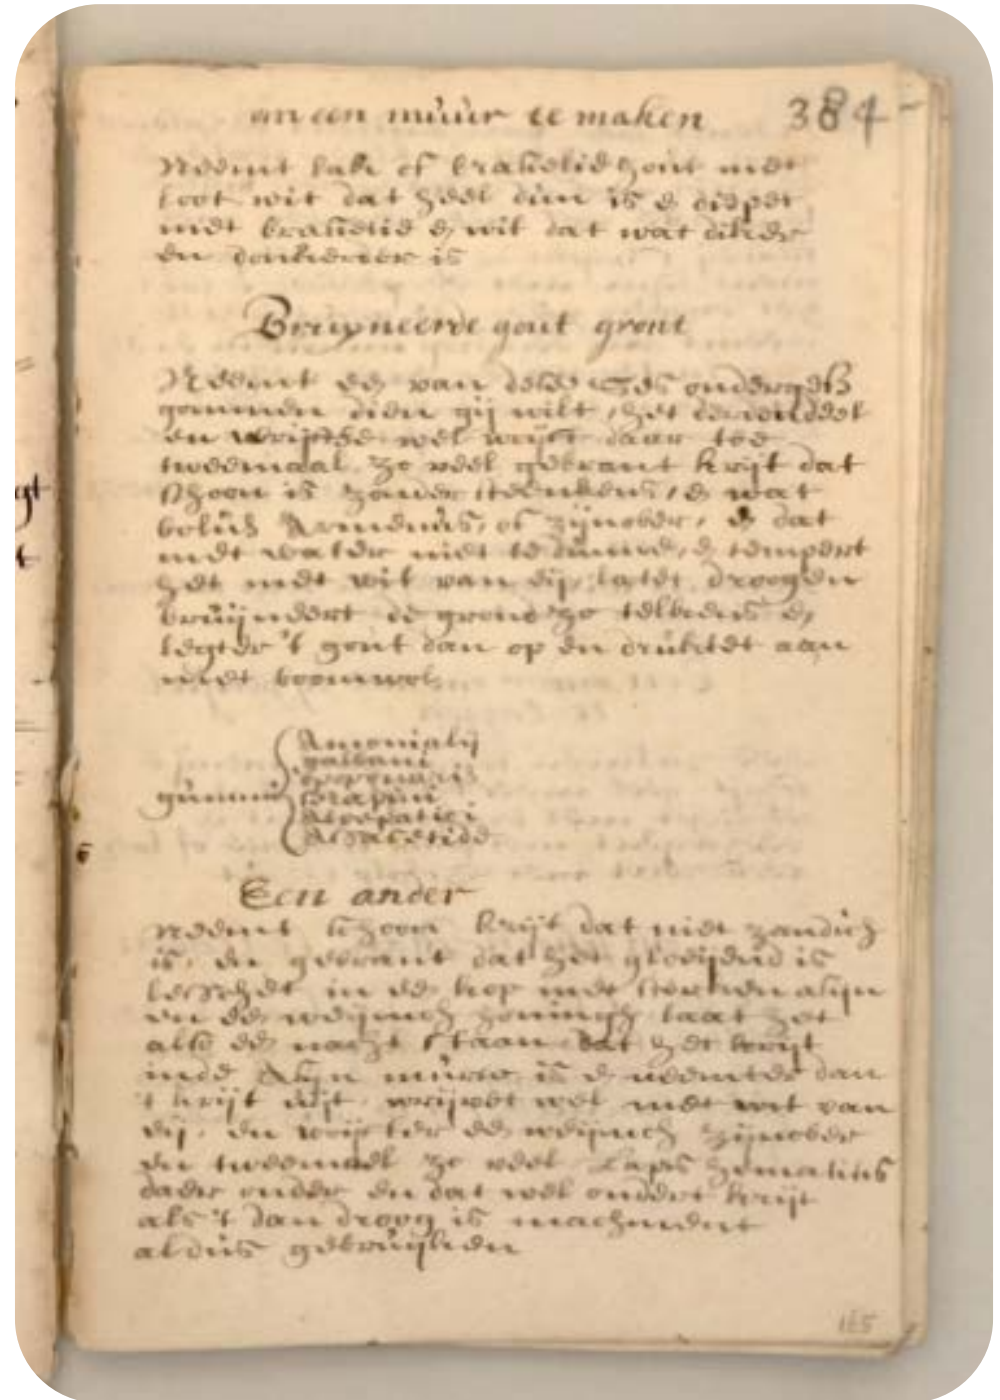 an een muùr te maken 384
Neemt lak of bresilie hout met
loot wit dat heel dun is & diepet
met bresilie & wit dat wat dikker
en donkerder is
Bruyneerde gout gront
Neemt een van dese ses
gommen dien gij wilt, het
en wel daar toe
tweemaal zo veel gebrant krijt dat
schoon is zonder steenkens, & wat
bolùs Armenùs, of zijnober, & dat
met water niet te dunne, & tempert
het met wit van eij, latet droogen
brùijneert de grond zo telkens &
legter 't gout dan op en drùktet aan
met boomwol
gùmmi
Amoniakij
galbani
opoponacis
Serapini
Aloepatici
Assafetide
Een ander
Neemt schoon krijt dat niet zandich
is, en gebrant dat het gloeijend is
lesschet in een kop met sterken azijn
en een weijnich honingh laat het
also een nacht staan dat het krijt
inde Azijn mùrw is & neemter dan
't krijt ùijt, wrijvet wel met wit van
eij, en wrijfter een weijnich zijnober
en tweemael zo veel Lapis hematitis
daer onder en dat wel ondert krijt
als 't dan droog is machment
aldùs gebrùijken
185